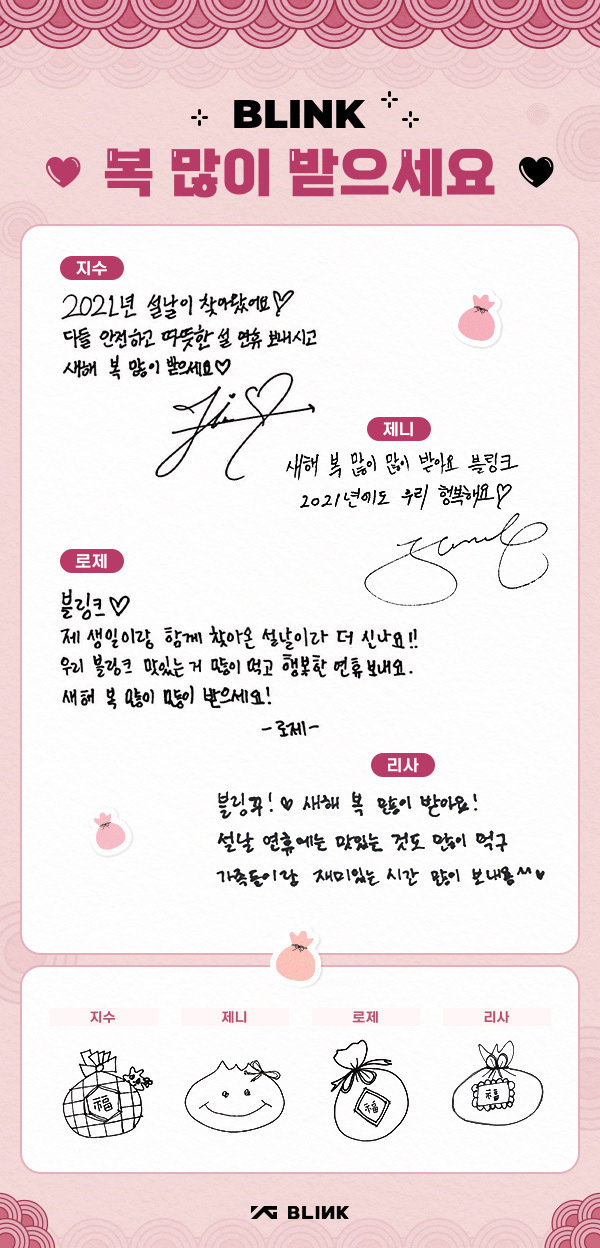 BLINK
복 많이 받으세요
지수
2021년 설날이 찾아왔어요♡
다들 안전하고 따뜻한 설 연휴 보내시고
새해 복 많이 받으세요♡
제니
새해 복 많이 많이 받아요 블링크
2021년에도 우리 행복해요♡
로제
블링크♡
제 생일이랑 함께 찾아온 설날이라 더 신나요!!
우리 블링크 맛있는 거 많이 먹고 행복한 연휴 보내요.
새해 복 많이 많이 받으세요!
-로제-
리사
블링꾸!♥ 새해 복 많이 받아요!
설날 연휴에는 맛있는 것도 많이 먹구
가족들이랑 재미있는 시간 많이 보내용^^♥
지수 제니 로제 리사
福 福 福
YG BLINK